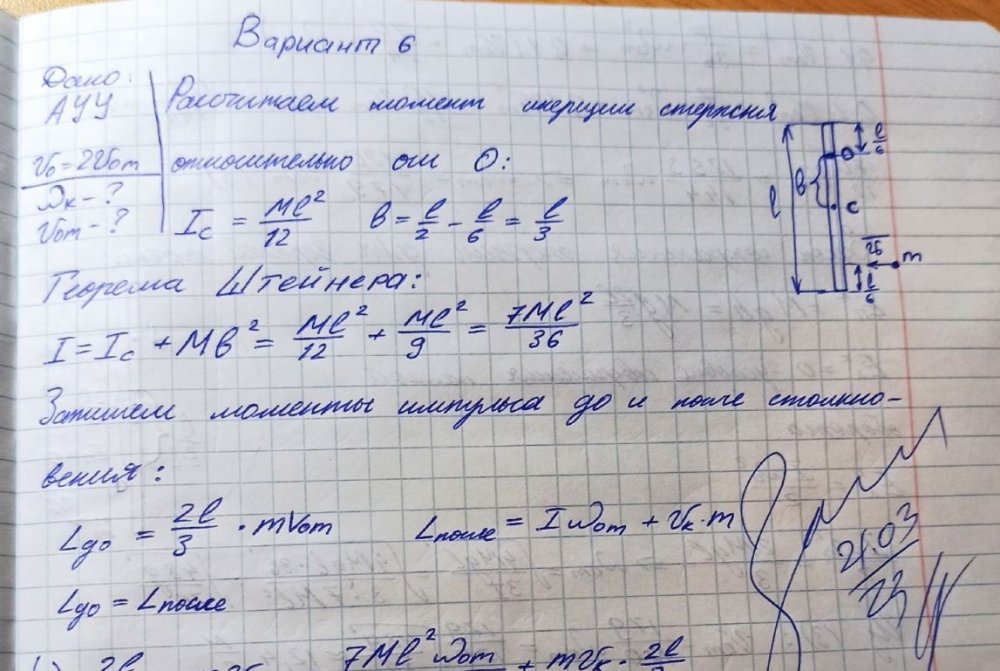 Вариант 6
Дано:
АУУ
v₀ = 2v₀m
ω_к - ?
v₀m - ?
Рассчитаем момент инерции стержня
относительно оси O:
I_c = Ml²/12   b = l/2 - l/6 = l/3
Теорема Штейнера:
I = I_c + Mb² = Ml²/12 + Ml²/9 = 7Ml²/36
Запишем моменты импульса до и после столкно-
вения:
L_до = 2l/3 · mV₀m   L_после = Iω₀m + v_к·m
L_до = L_после
7Ml²ω₀m + mv_к · 2l
l
b
l/6
O
C
v₀
m
l/6
21.03
23